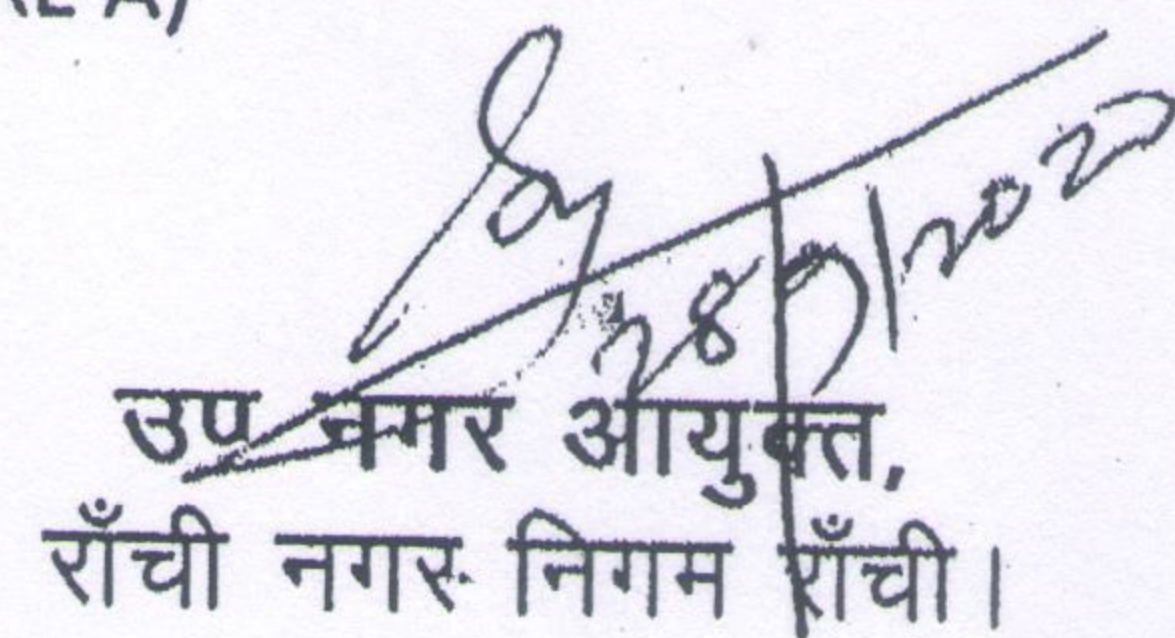 28/7/2020
उप नगर आयुक्त,
राँची नगर निगम राँची।